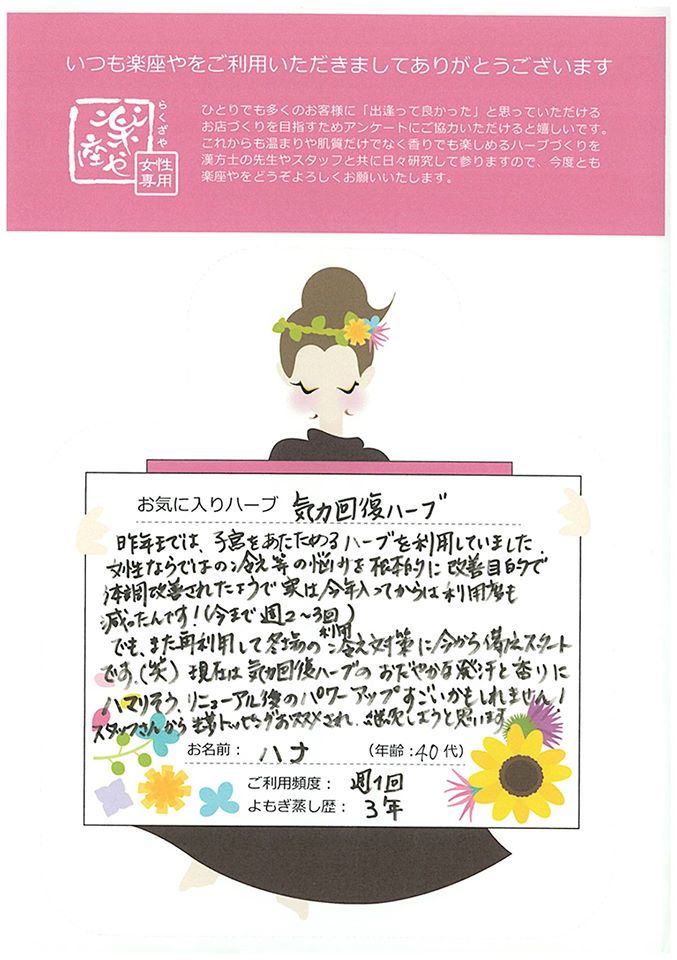 いつも楽座やをご利用いただきましてありがとうございます
らくざや
楽座や
女性専用
ひとりでも多くのお客様に「出逢って良かった」と思っていただける
お店づくりを目指すためアンケートにご協力いただけると嬉しいです。
これからも温まりや肌質だけでなく香りでも楽しめるハーブづくりを
漢方士の先生やスタッフと共に日々研究して参りますので、今度とも
楽座やをどうぞよろしくお願いいたします。
お気に入りハーブ 気力回復ハーブ
昨年までは、子宮をあたためるハーブを利用していました。
女性ならではの冷え等の悩みを根本的に改善目的で
体調改善されたようで実は今年入ってからは利用度も
減ったんです!(今まで週2〜3回)
でも、また再利用して冬場の利用冷え対策に今から備えスタート
です。(笑) 現在は気力回復ハーブのおだやかな発汗と香りに
ハマりそう。リニューアル後のパワーアップすごいかもしれません!
スタッフさんからトッピングおススメされ、継続しようと思います
お名前: ハナ (年齢:40代)
ご利用頻度: 週1回
よもぎ蒸し歴: 3年